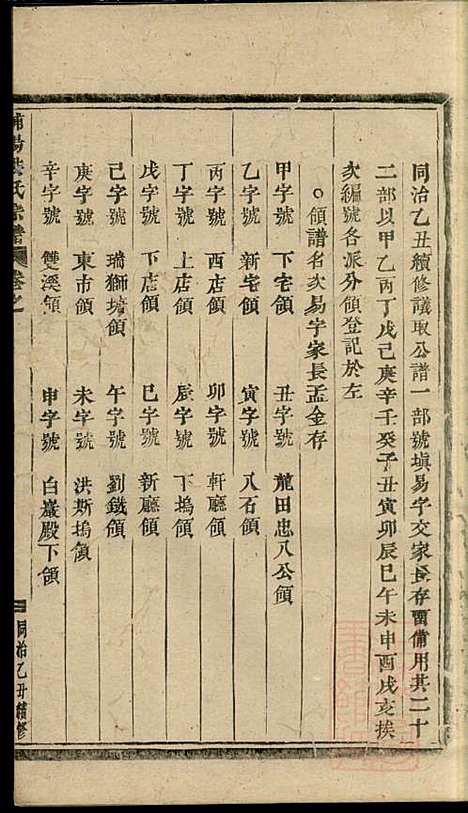 同治乙丑續修議取公譜一部號塡易字交家長存畱備用其二十
二部以甲乙丙丁戊己庚辛壬癸子丑寅卯辰巳午未申酉戌亥挨
次編號各派分領登記於左
○領譜名次易字家長孟金存
甲字號 下宅領 丑字號 龍田忠八公領
乙字號 新宅領 寅字號 八石領
丙字號 西店領 卯字號 軒廳領
丁字號 上店領 辰字號 下塢領
戊字號 下店領 巳字號 新廳領
己字號 瑞獅塘領 午字號 劉鐵領
庚字號 東市領 未字號 洪斯塢領
辛字號 雙溪領 申字號 白巖殿下領
氏宗譜 卷之
同治乙丑續修